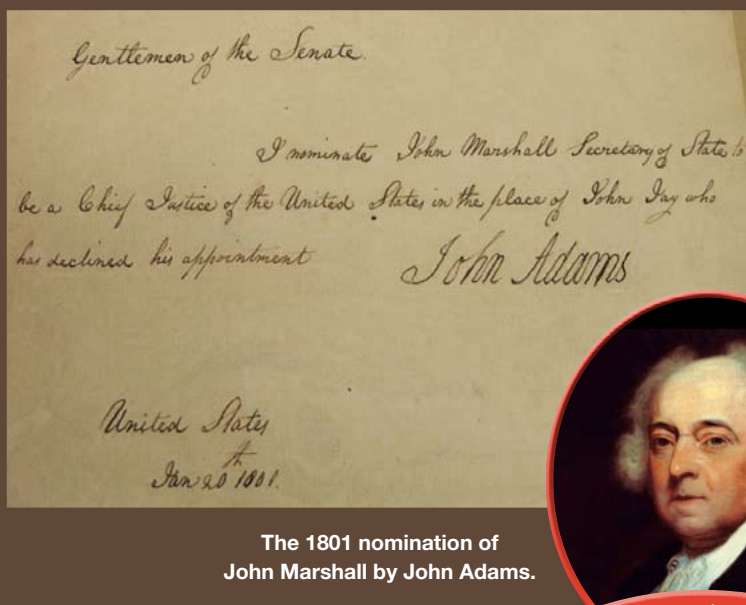 Gentlemen of the Senate.
I nominate John Marshall Secretary of State to
be a Chief Justice of the United States in the place of John Jay who
has declined his appointment
John Adams
United States
Jan 20th 1801.
The 1801 nomination of
John Marshall by John Adams.